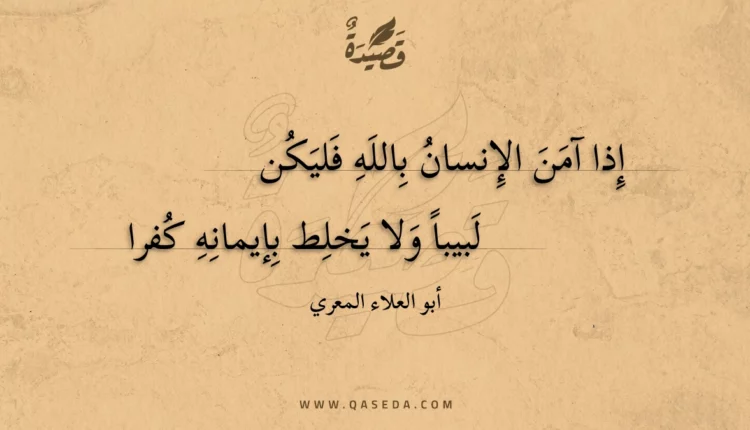 قَصِيدَةٌ
إِذا آمَنَ الإِنسانُ بِاللَهِ فَليَكُن
لَبيباً وَلا يَخلِط بِإيمانِهِ كُفرا
أبو العلاء المعري
WWW.QASEDA.COM